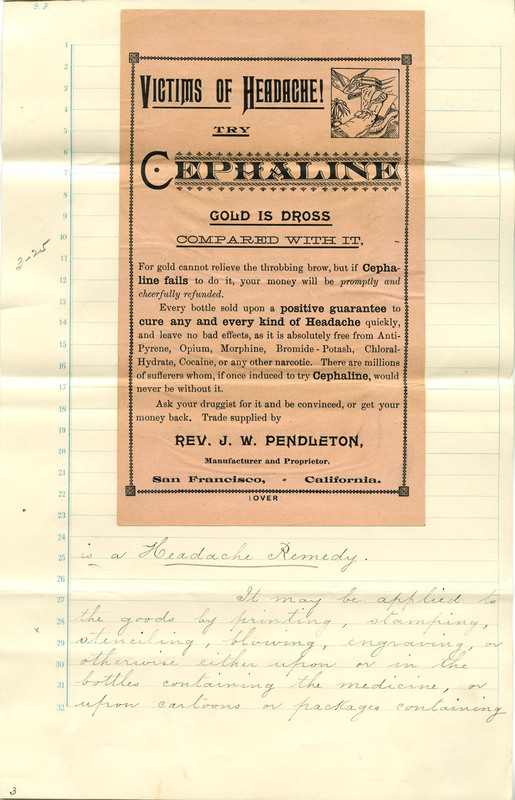 S. D.
1
2
3
4
5
6
7
8
9
10
11
12
13
14
15
16
17
18
19
20
21
22
23
24
25
26
27
28
29
30
31
32
3-25
VICTIMS OF HEADACHE!
TRY
CEPHALINE
GOLD IS DROSS
COMPARED WITH IT,
For gold cannot relieve the throbbing brow, but if Cepha-
line fails to do it, your money will be promptly and
cheerfully refunded.
Every bottle sold upon a positive guarantee to
cure any and every kind of Headache quickly,
and leave no bad effects, as it is absolutely free from Anti-
Pyrene, Opium, Morphine, Bromide-Potash, Chloral-
Hydrate, Cocaine, or any other narcotic. There are millions
of sufferers whom, if once induced to try Cephaline, would
never be without it.
Ask your druggist for it and be convinced, or get your
money back. Trade supplied by
REV. J. W. PENDLETON,
Manufacturer and Proprietor.
San Francisco, - California.
(OVER
is a Headache Remedy.
It may be applied to
the goods by printing, stamping,
stenciling, blowing, engraving, or
otherwise either upon or in the
bottles containing the medicine, or
upon cartoons or packages containing
x
3